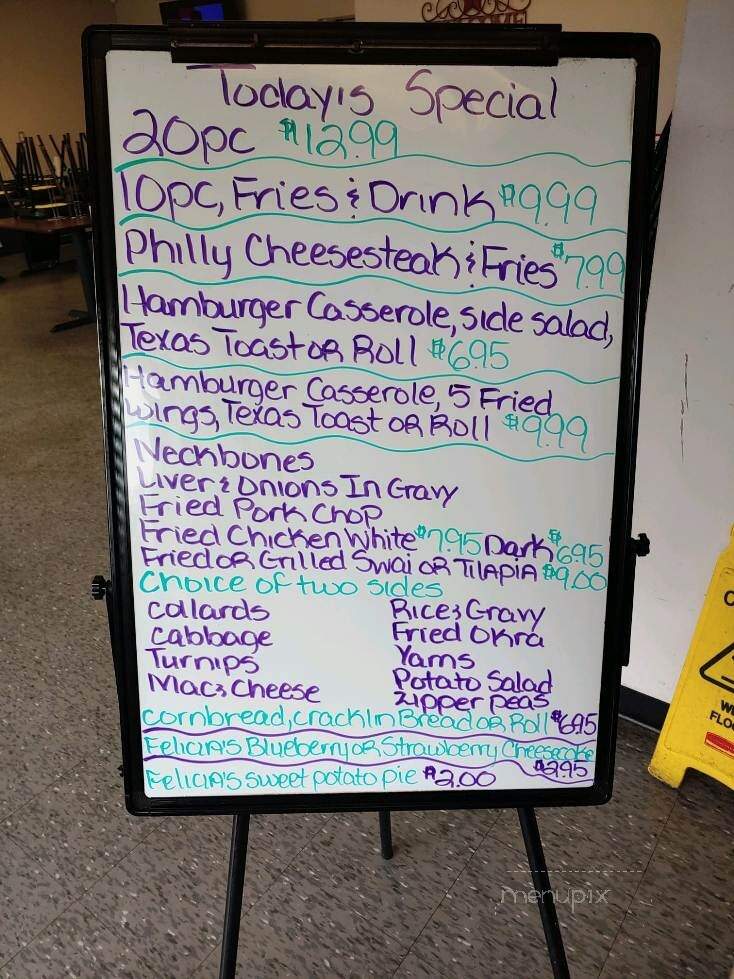 WELCOME
Today's Special
20pc $12.99
10pc, Fries & Drink $9.99
Philly Cheesesteak & Fries $7.99
Hamburger Casserole, side salad,
Texas Toast OR Roll $6.95
Hamburger Casserole, 5 Fried
Wings, Texas Toast OR Roll $9.99
Neckbones
Liver & Onions In Gravy
Fried Pork Chop
Fried Chicken White $7.95 Dark $6.95
Fried OR Grilled Swai OR TilApiA $9.00
Choice of two sides
collards Rice & Gravy
cabbage Fried Okra
Turnips Yams
Mac & Cheese Potato Salad
Zipper peas
cornbread, cracklin Bread OR Roll $6.95
FeliciA's Blueberry OR Strawberry Cheesecake
$2.95
FeliciA's sweet potato pie $2.00
menupix